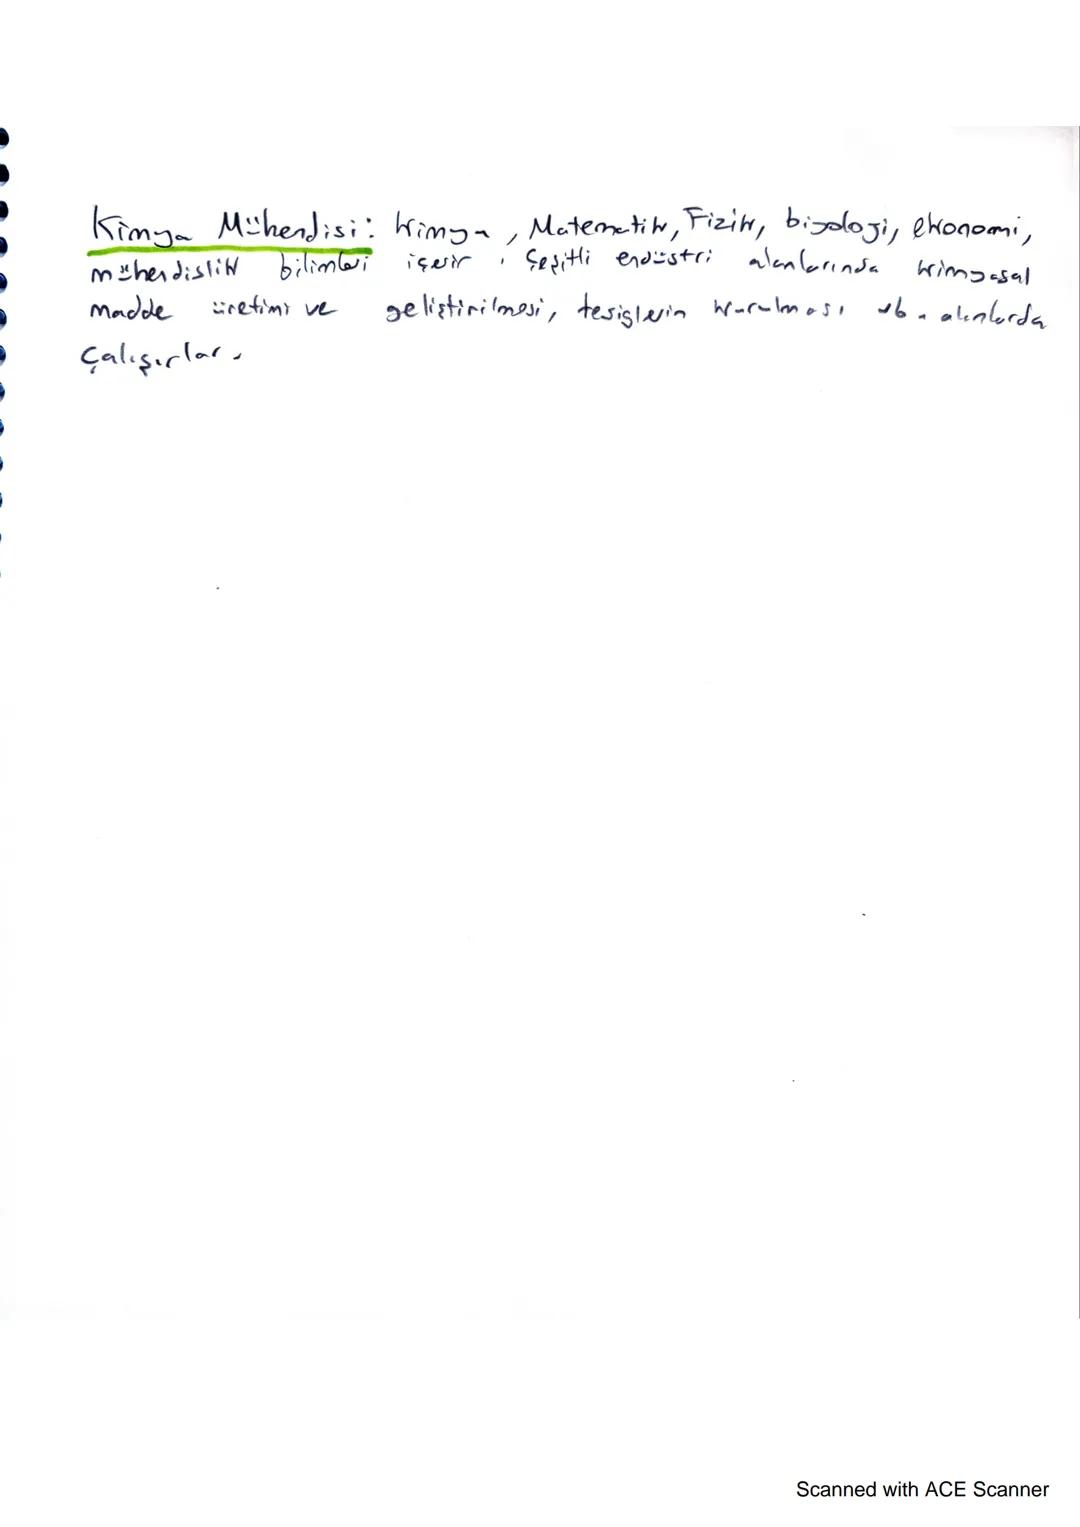 Kimya Mühendisi: Kimya, Matematik, Fizik, biyoloji, ekonomi,
mühendislik bilimleri içerir. Çeşitli endüstri alanlarında kimyasal
madde üretimi ve geliştirilmesi, tesislerin kurulması vb. alanlarda
Çalışırlar.
Scanned with ACE Scanner